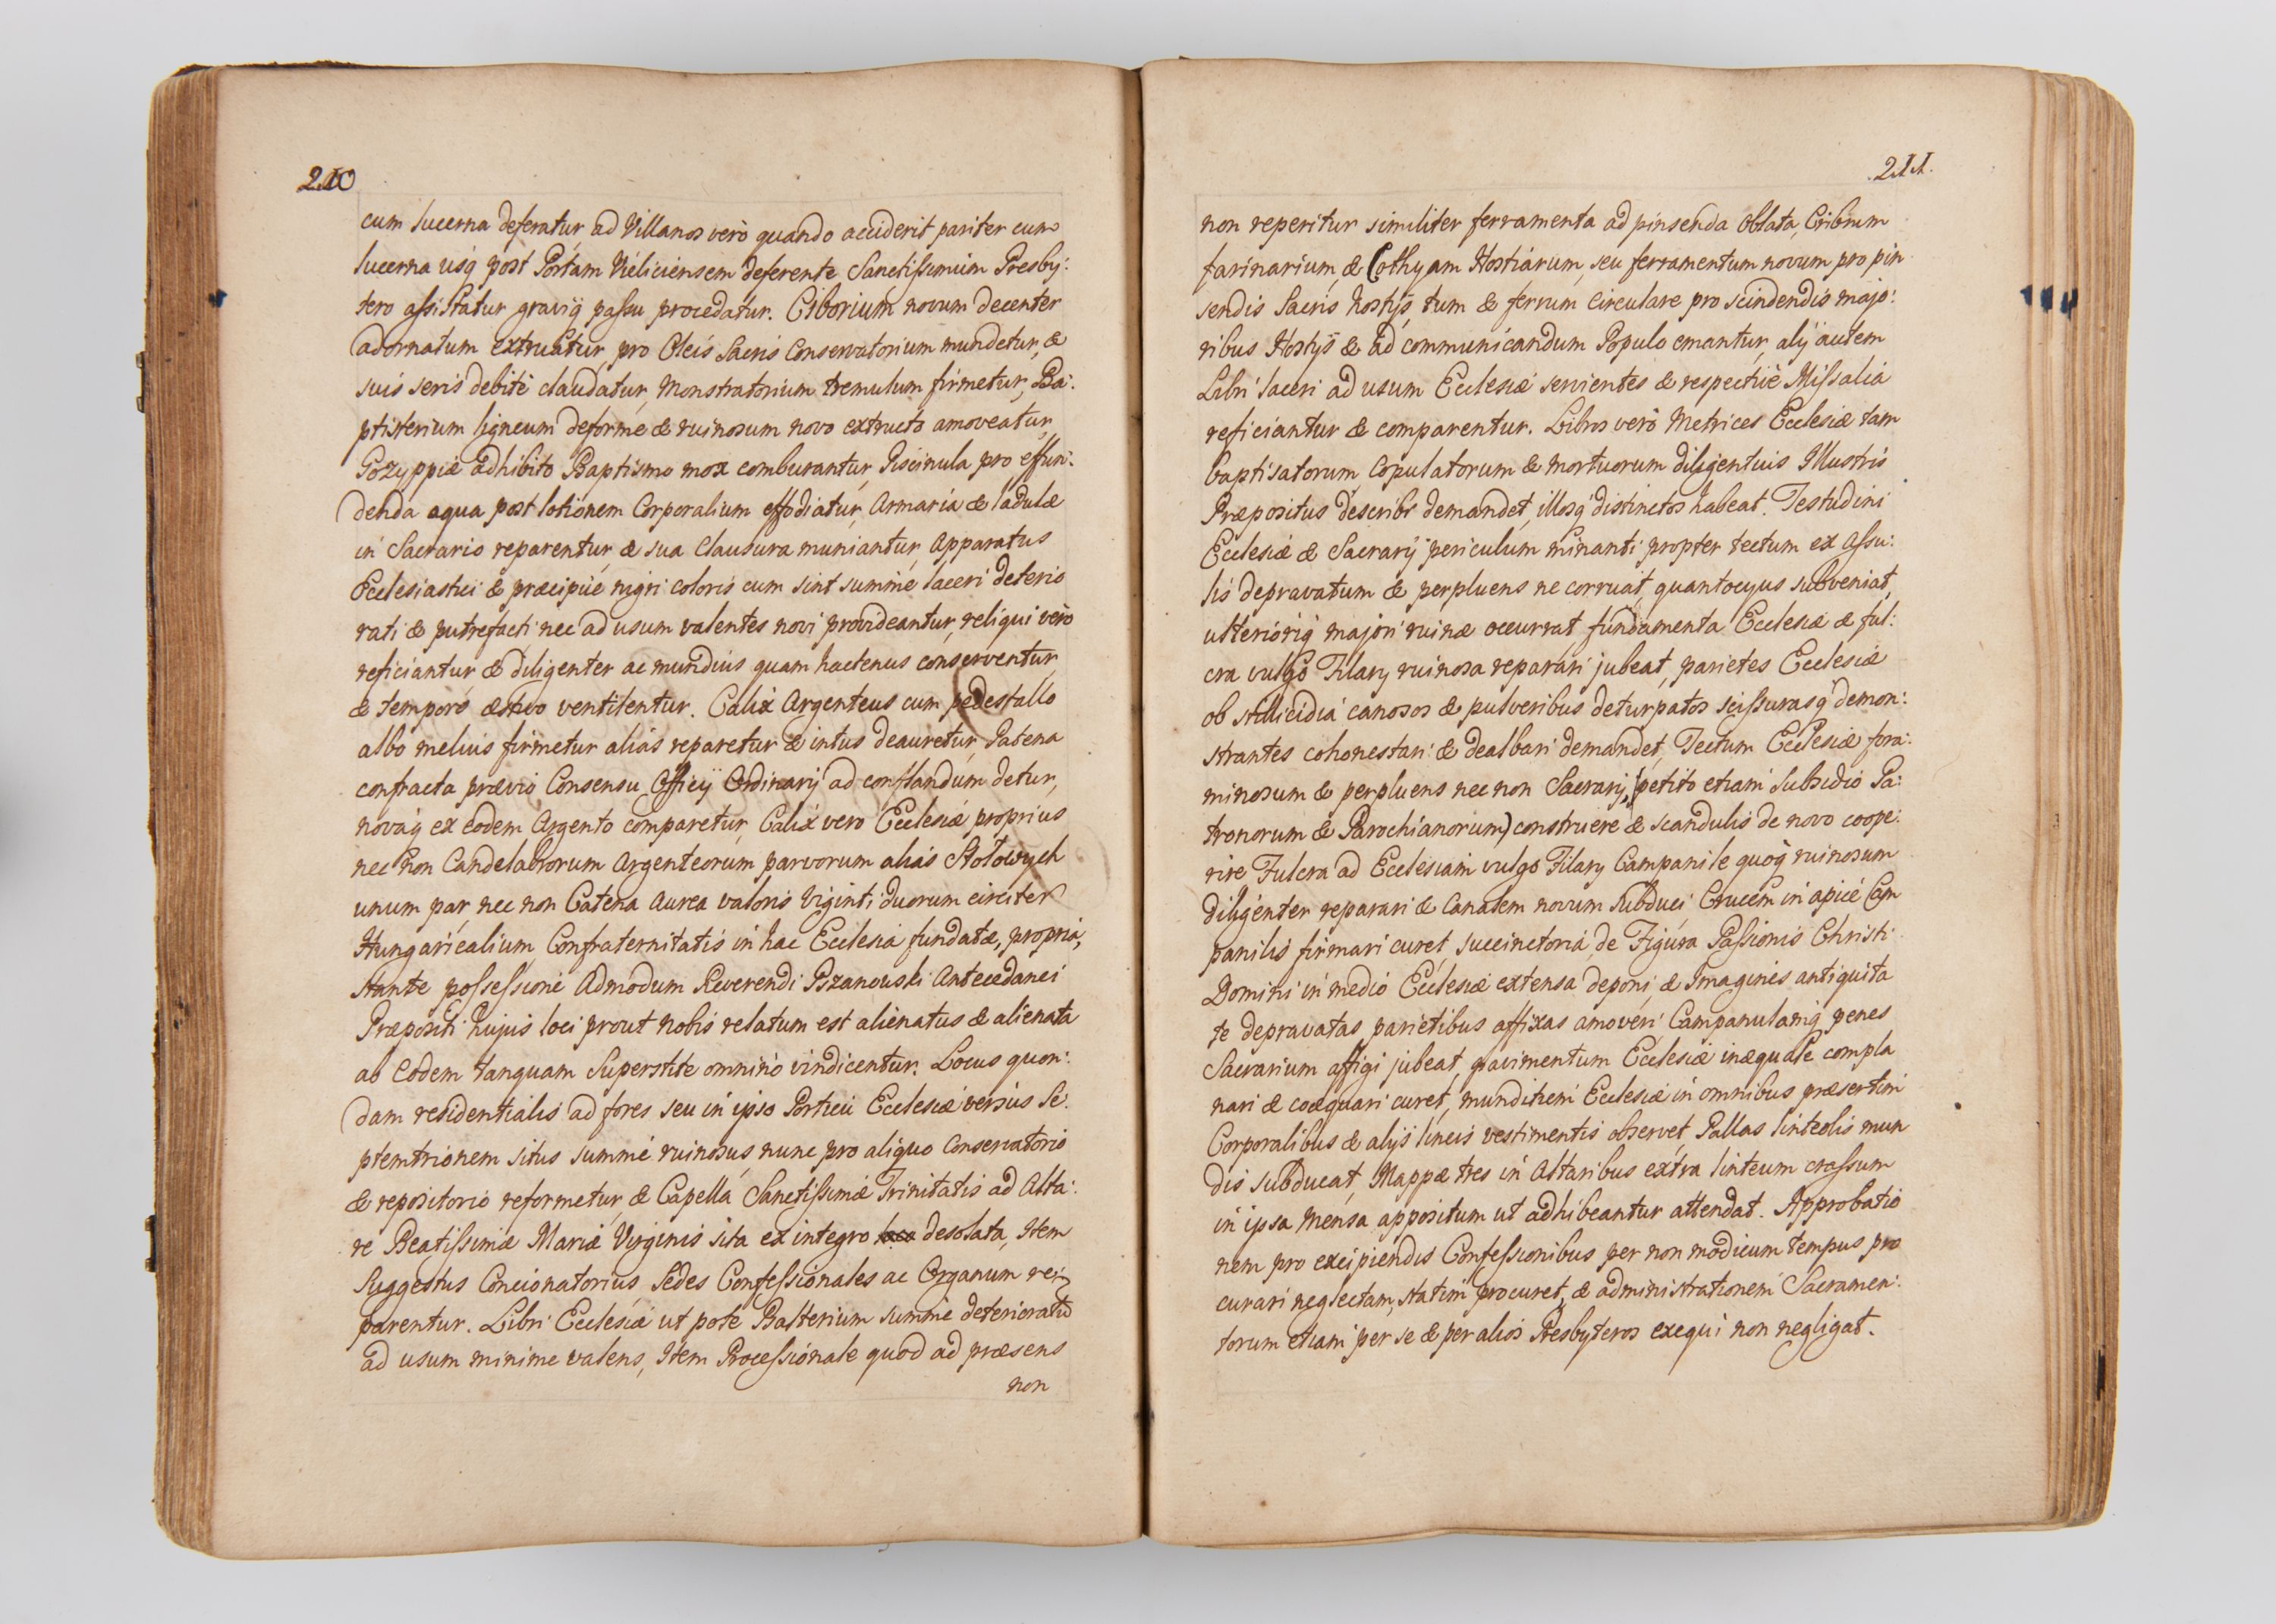 210
cum lucerna deferatur ad Villanos verò quando acciderit pariter cum
lucerna usq post Portam Vieliciensem deferente Sanctissimum Presby:
tero assistatur gravíq passu procedatur. Ciborium novum decenter
adornatum extruatur pro Oleis Sacris Conservatorium mundetur, &
suis seris debitè claudatur, Monstratorium tremulum firmetur, Ba:
ptisterium ligneum deforme & ruinosum novo extructo amoveatur,
Gozyppiæ adhibito Baptismo mox comburantur, Piscinula pro effun:
denda aqua post lotionem Corporalium effodiatur, Armaria & ladulæ
in Sacrario reparentur, & sua Clausura muniantur, Apparatus
Ecclesiastici & præcipuè nigri coloris cum sint summè laceri deterio
rati & putrefacti nec ad usum valentes novi provideantur, reliqui verò
reficiantur & diligenter ac mundius quam hactenus conserventur,
& tempore æstivo ventilentur. Calix Argenteus cum pedestallo
albo melius firmetur aliàs reparetur & intus deauretur, Patena
confracta prævio Consensu Officij Ordinarij ad conflandum detur,
novaq ex eodem Argento comparetur, Calix vero Ecclesiæ proprius
nec non Candelabrorum Argenteorum parvorum aliàs Stołowych
unum par nec non Catena Aurea valoris Viginti duorum circiter
Hungaricalium, Confraternitatis in hac Ecclesia fundatæ, propria,
stante possessione Admodum Reverendi Pszanowski Antecedanei
Præpositi hujus loci prout nobis relatum est alienatus & alienata
ab Eodem tanquam Superstite omnino vindicentur. Locus quon:
dam residentialis ad fores seu in ipso Porticu Ecclesiæ versùs Se:
ptemtrionem situs summè ruinosus nunc pro aliquo Conservatorio
& repositorio reformetur, & Capella Sanctissimæ Trinitatis ad Alta:
re Beatissimæ Mariæ Virginis sita ex integro desolata, Item
Suggestus Concionatorius, Sedes Confessionales ac Organum re:
parentur. Libri Ecclesiæ ut pote Psalterium summè deterioratū
ad usum minime valens, Item Processionale quod ad præsens
non
211.
non reperitur similiter ferramenta ad pinsenda Oblata, Cribrum
farinarium, & Cothyam Hostiarum, seu ferramentum novum pro pin
sendis Sacris hostijs, tum & ferrum Circulare pro scindendis majo:
ribus Hostijs & ad communicandum Populo emantur, alij autem
Libri laceri ad usum Ecclesiæ servientes & respectivè Missalia
reficiantur & comparentur. Libros verò Metrices Ecclesiæ tam
baptisatorum, Copulatorum & Mortuorum diligentius Illustris
Præpositus describi demandet, illosq distinctos habeat. Testudini
Ecclesiæ & Sacrarij periculum minanti propter tectum ex Assu:
lis depravatum & perpluens ne corruat, quantocyus subveniat,
ulterioriq majori ruinæ occurrat fundamenta Ecclesiæ & ful:
cra vulgò Filary ruinosa reparari jubeat, parietes Ecclesiæ
ob stillicidia canosos & pulveribus deturpatos scissurasq demon:
strantes cohonestari & dealbari demandet, Tectum Ecclesiæ fora:
minosum & perpluens nec non Sacrarij, (petito etiam Subsidio Pa:
tronorum & Parochianorum) construere & scandulis de novo coope:
rire Fulcra ad Ecclesiam vulgo Filary Campanile quoq ruinosum
diligenter reparari & Canalem novum subduci Crucem in apice Cam
panilis firmari curet, succinctoria de Figura Passionis Christi
Domini in medio Ecclesiæ extensa deponi & Imagines antiquita
te depravatas parietibus affixas amoveri Campanulamq penes
Sacrarium affigi jubeat, pavimentum Ecclesiæ inæquale compla
nari & coæquari curet, munditiem Ecclesiæ in omnibus præsertim
Corporalibus & alijs lineis vestimentis observet Pallas linteolis mun
dis subducat, Mappæ tres in Altaribus extra linteum crassum
in ipsa Mensa appositum ut adhibeantur attendat. Approbatio
nem pro excipiendis Confessionibus per non modicum tempus pro
curari neglectam, statim procuret, & administrationem Sacramen:
torum etiam per se & per alios Presbyteros exequi non negligat.